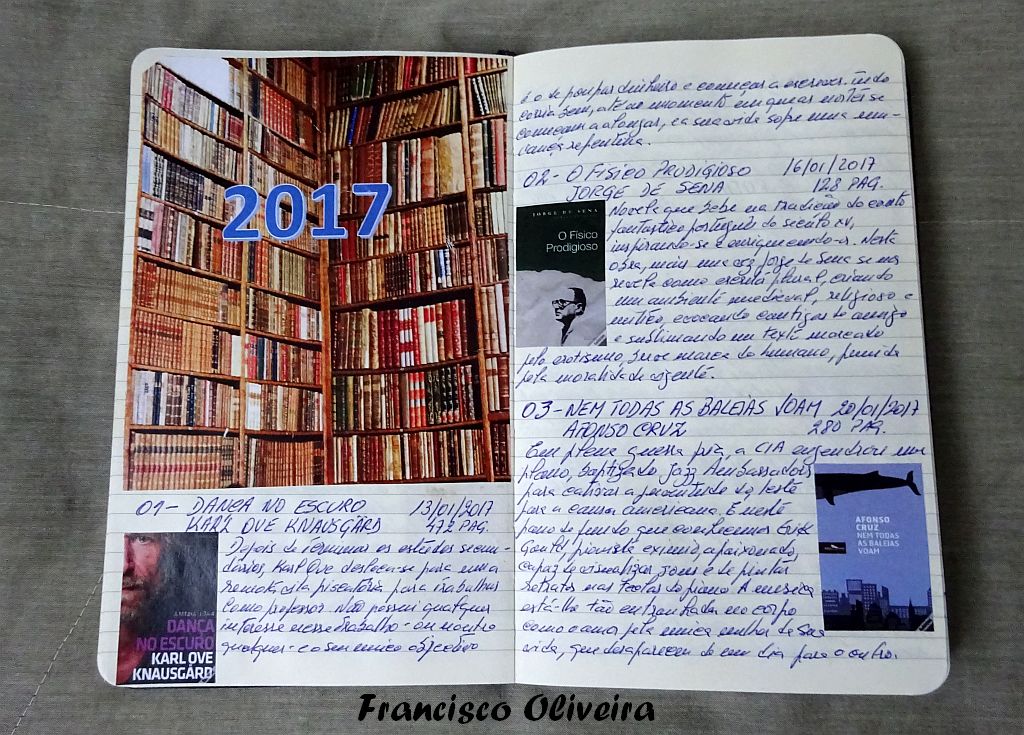 2017
01- DANÇA NO ESCURO 13/01/2017
KARL OVE KNAUSGÅRD 472 PAG.
A MINHA LUTA: 4
DANÇA
NO ESCURO
KARL OVE
KNAUSGÅRD
Depois de terminar os estudos secun-
dários, Karl Ove desloca-se para uma
remota vila piscatória, para trabalhar
como professor. Não possui qualquer
interesse nesse trabalho - ou noutro
qualquer - e o seu único objectivo
é o de poupar dinheiro e começar a escrever. Tudo
corria bem, até ao momento em que as noites se
começam a alongar, e a sua vida sofre uma mu-
dança repentina.
02- O FÍSICO PRODIGIOSO 16/01/2017
JORGE DE SENA 128 PAG.
JORGE DE SENA
O Físico
Prodigioso
Novela que bebe na tradição do conto
fantástico português do século XV,
inspirando-se e enriquecendo-o. Nesta
obra, mais uma vez Jorge de Sena se nos
revela como escritor plural, criando
um ambiente medieval, religioso e
mítico, evocando cantigas de amigo
e sublimando um texto marcado
pelo erotismo, suave marca do humano, punida
pela moralidade vigente.
03- NEM TODAS AS BALEIAS VOAM 20/01/2017
AFONSO CRUZ 280 PAG.
Em plena guerra fria, a CIA engendrou um
plano, baptizado Jazz Ambassadors
para cativar a juventude de leste
para a causa americana. É neste
pano de fundo que conhecemos Erik
Gould, pianista exímio, apaixonado,
capaz de visualizar sons e de pintar
retratos nas teclas do piano. A música
está-lhe tão entranhada no corpo
como o amor pela única mulher da sua
vida, que desapareceu de um dia para o outro.
AFONSO
CRUZ
NEM TODAS
AS BALEIAS
VOAM
Francisco Oliveira